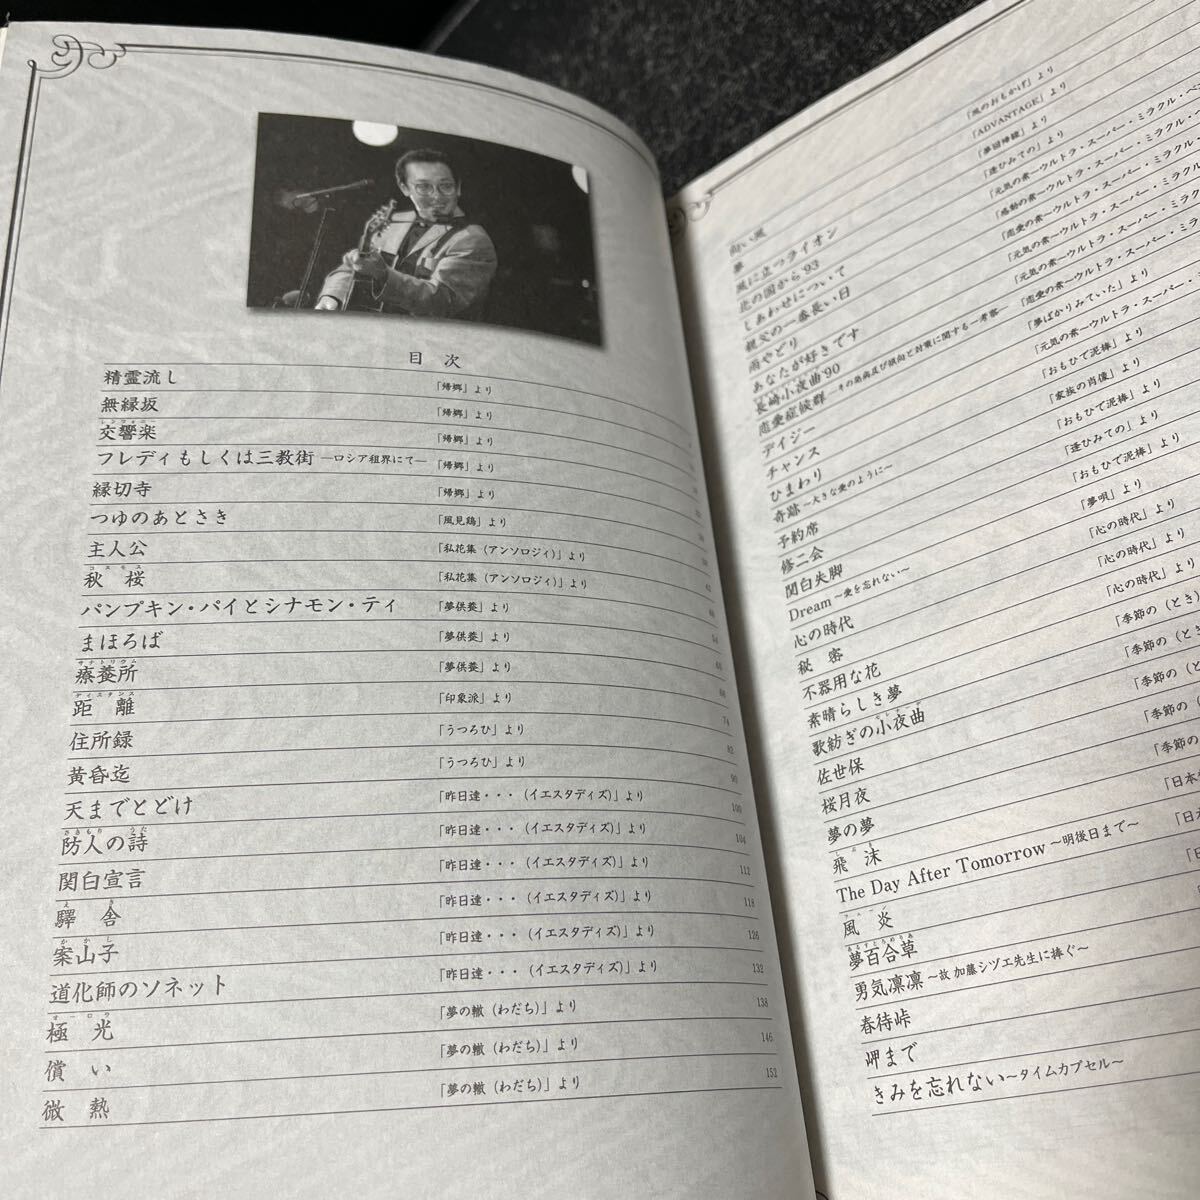 目次
精霊流し 「帰郷」より
無縁坂 「帰郷」より
交響楽 「帰郷」より
フレディもしくは三教街 ―ロシア租界にて― 「帰郷」より
縁切寺 「帰郷」より
つゆのあとさき 「風見鶏」より
主人公 「私花集(アンソロジィ)」より
秋桜 コスモス 「私花集(アンソロジィ)」より
パンプキン・パイとシナモン・ティ 「夢供養」より
まほろば 「夢供養」より 54
療養所 サナトリウム 「夢供養」より
距離 ディスタンス 「印象派」より
住所録 「うつろひ」より 74
黄昏迄 「うつろひ」より 82
天までとどけ 「昨日達・・・(イエスタデイズ)」より 90
防人の詩 さきもり うた 「昨日達・・・(イエスタデイズ)」より 100
関白宣言 「昨日達・・・(イエスタデイズ)」より 104
驛舎 えき 「昨日達・・・(イエスタデイズ)」より 112
案山子 かかし 「昨日達・・・(イエスタデイズ)」より 118
道化師のソネット 「昨日達・・・(イエスタデイズ)」より 126
極光 オーロラ 「夢の轍(わだち)」より 132
償い 「夢の轍(わだち)」より 138
微熱 「夢の轍(わだち)」より 146
152
向い風 「風のおもかげ」より
夢 「ADVANTAGE」より
風に立つライオン 「夢回帰線」より
北の国から'93 「逢ひみての」より
しあわせについて 「元気の素～ウルトラ・スーパー・ミラクル・ベス
親父の一番長い日 「感動の素～ウルトラ・スーパー・ミラクル・
雨やどり 「恋愛の素～ウルトラ・スーパー・ミラクル・
あなたが好きです 「元気の素～ウルトラ・スーパー・ミラクル
長崎小夜曲'90 「元気の素～ウルトラ・スーパー・ミラ
恋愛症候群 ―その発病及び傾向と対策に関する一考察― 「恋愛の素～ウルトラ・スーパー・
デイジー 「夢ばかりみていた」より
チャンス 「元気の素～ウルトラ・スーパー・
ひまわり 「おもひで泥棒」より
奇跡～大きな愛のように～ 「家族の肖像」より
予約席 「おもひで泥棒」より
修二会 「逢ひみての」より
関白失脚 「おもひで泥棒」より
Dream ～愛を忘れない～ 「夢唄」より
心の時代 「心の時代」より
秘密 「心の時代」より
不器用な花 「心の時代」より
素晴らしき夢 「季節の(とき)
歌紡ぎの小夜曲 セレナーデ 「季節の(とき
佐世保 「季節の(と
桜月夜 「季節の(
夢の夢 「季節の
飛沫 しぶき 「日本
The Day After Tomorrow ～明後日まで～ 「日本
風炎 フェーン 「日
夢百合草 あるすとろめりあ
勇気凛凛 ～故 加藤シヅエ先生に捧ぐ～
春待峠
岬まで
きみを忘れない～タイムカプセル～